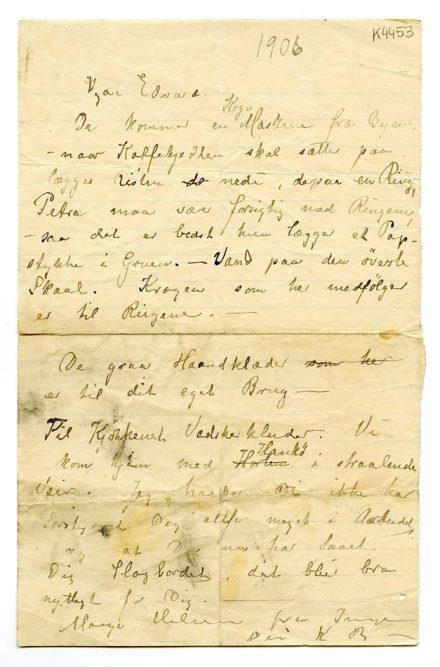 1906
K4453
Kjære Edvard.
Der kommer en Koge Maskine fra Byen
- naar Kaffekjedlen skal sættes paa
lægges Risten ~~de~~ nede, dapaa en Ring,
Petra maa være forsigtig med Ringene,
- saa det er bedst hun lægger et Pap-
stykke i Gruen. — Vand paa den øverste
Skaal. Krogen som her medfølger
er til Ringene. —
De graa Haandklæder ~~som her~~
er til dit eget Brug —
Til Kjøkkenet Vadskekluder. Vi
kom hjem med Hankø i straalende
Veir. Jeg haaper Vi ikke har
forstyrret Dig altfor meget i Arbeidet,
og at Du nu har faaet
Dig Slagbordet, det blir bra
nyttigt for Dig.
Mange Hilsener fra Inger
Din K B —